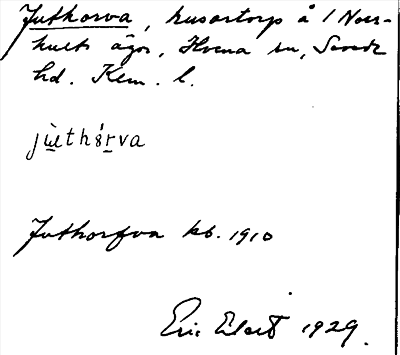 Juthorva, husartorp å 1 Norr-
hults ägor, Hvena sn, Sevede
hd. Kalm. l.
jùethórva
Juthorfva kb. 1910
Eric Elert 1929.